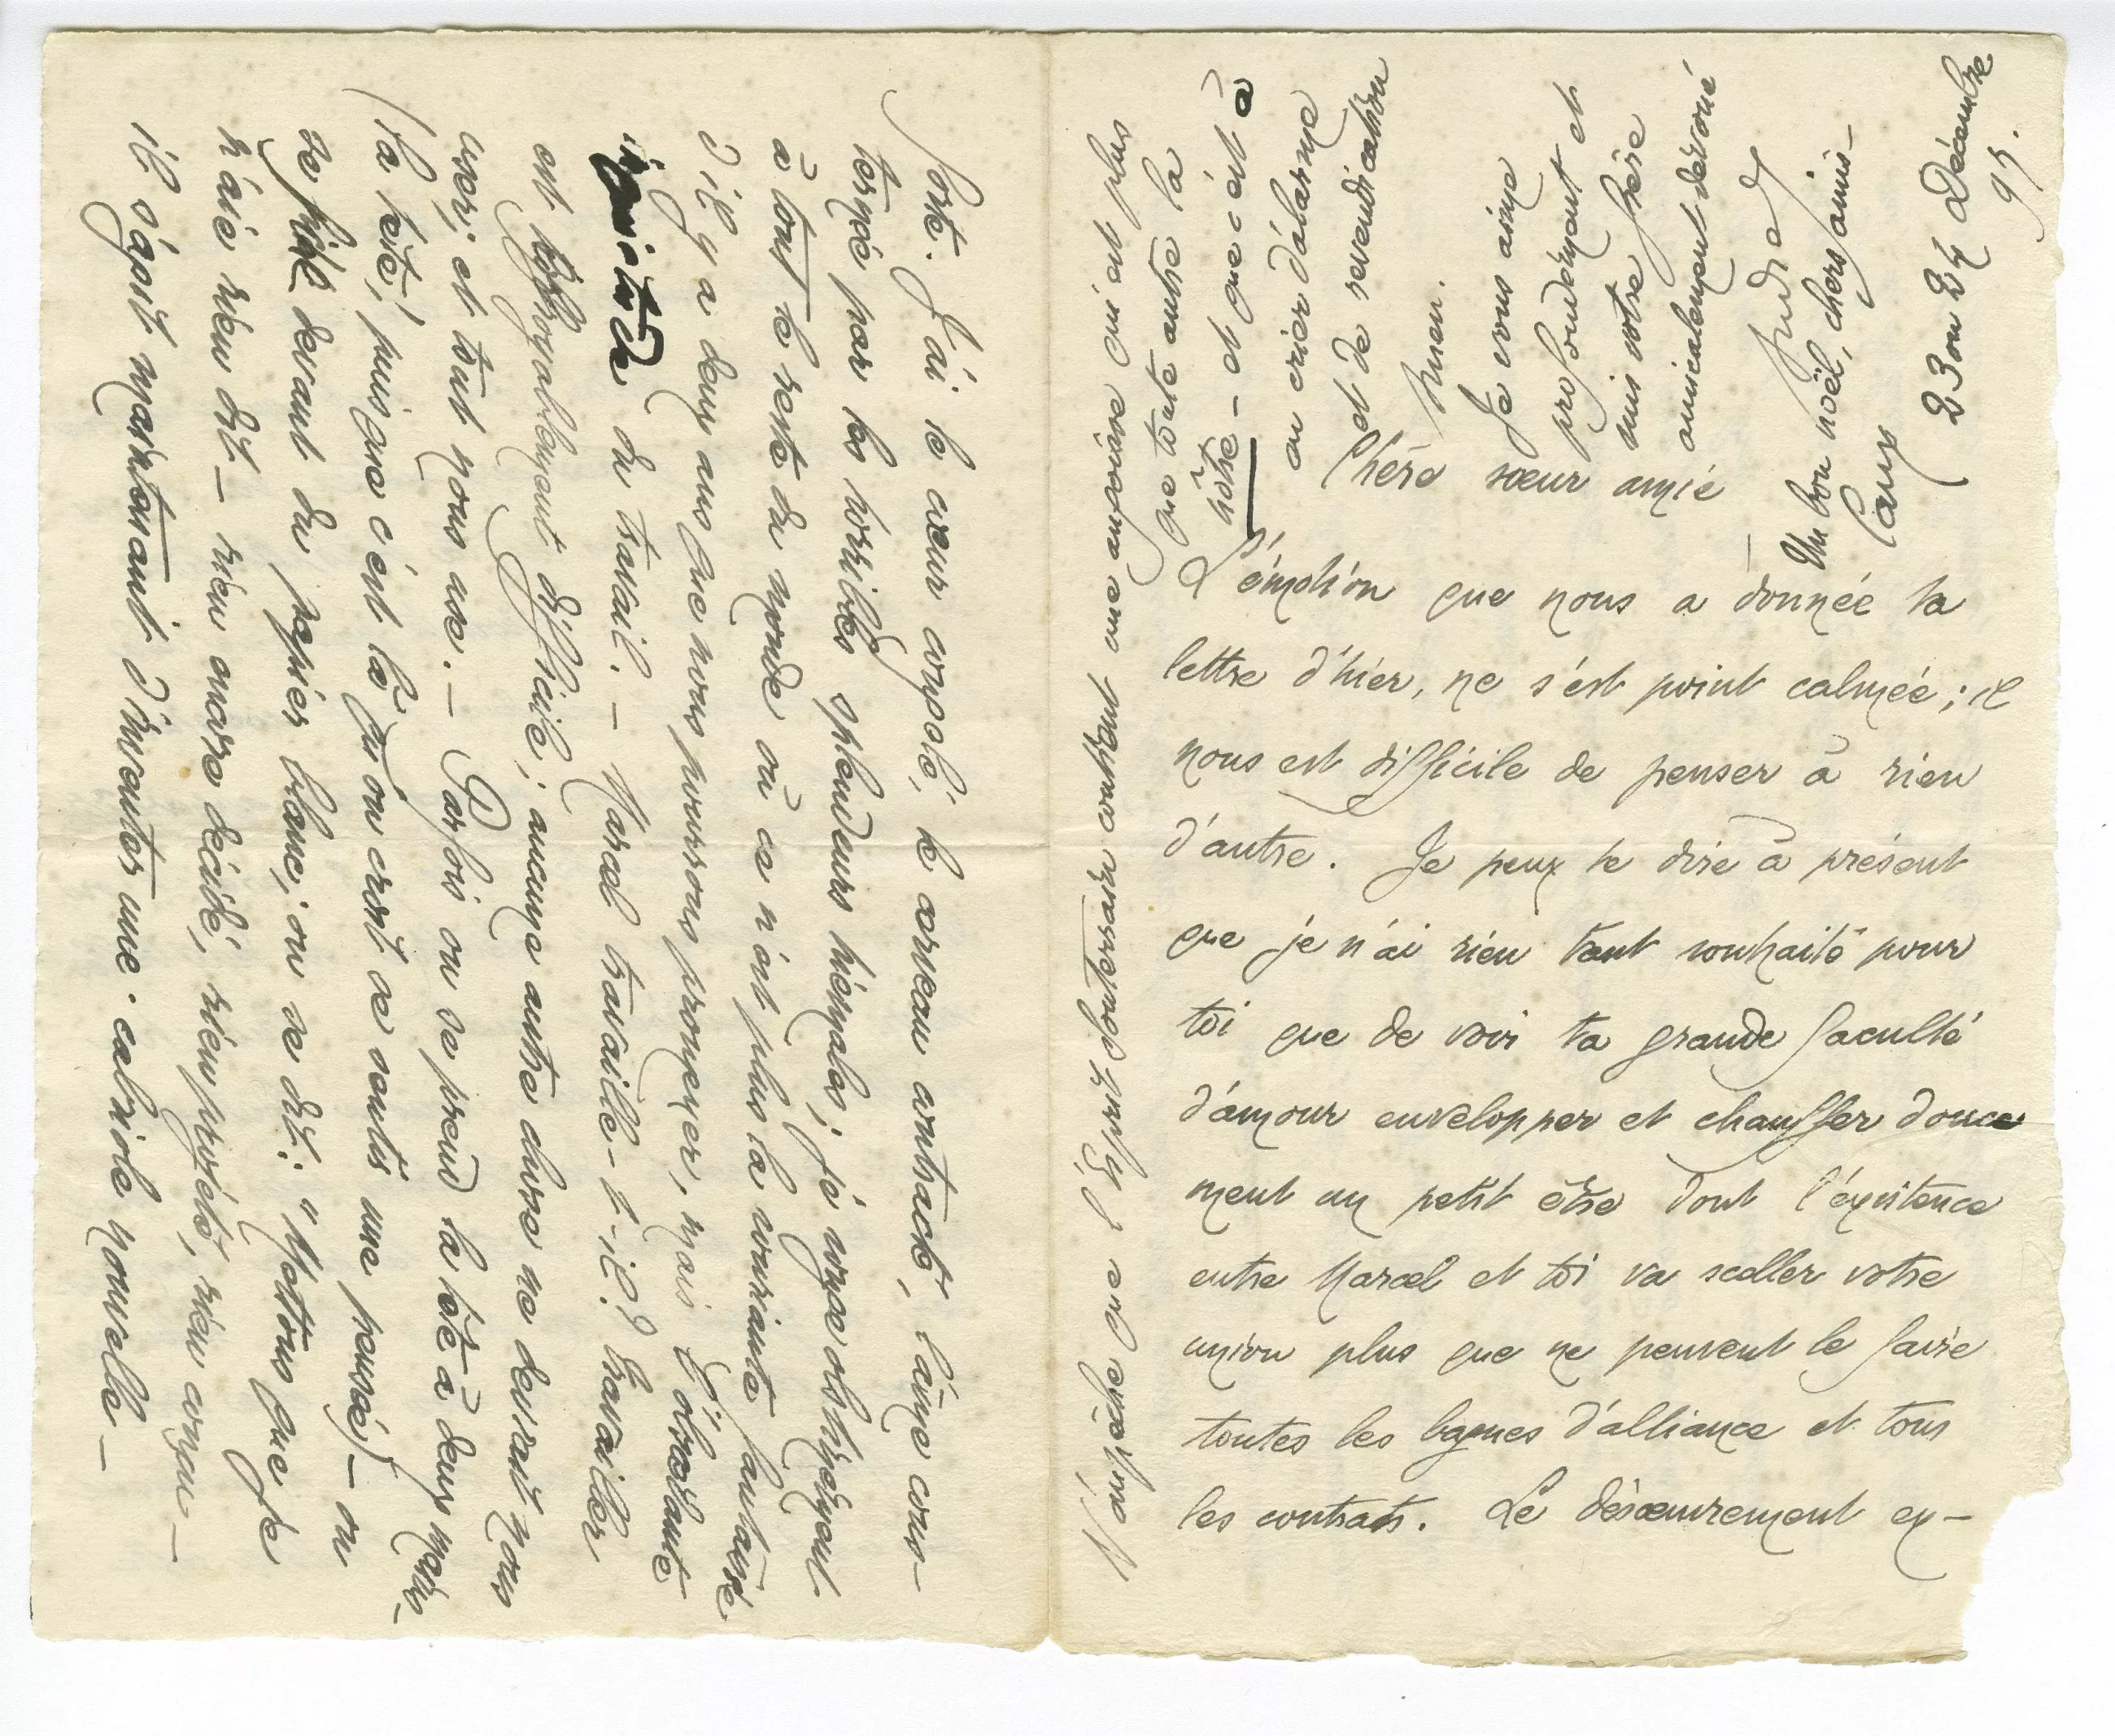 Caux
23 ou 24 Décembre
95.
Chère sœur amie
L'émotion que nous a donnée ta
lettre d'hier, ne s'est point calmée ; il
nous est difficile de penser à rien
d'autre. Je peux te dire à présent
que je n'ai rien tant souhaité pour
toi que de voir ta grande faculté
d'amour envelopper et chauffer douce
ment un petit être dont l'existence
entre Marcel et toi va sceller votre
union plus que ne peuvent le faire
toutes les bagues d'alliance et tous
les contrats. Le désœuvrement ex-
porte. J'ai le cœur congelé, le cerveau contracté, l'âme cons-
ternée par les horribles splendeurs hiémales ; je songe obstinément
à tout le reste du monde où ce n'est plus la souriante fantaisie
d'il y a deux ans que nous pourrons promener, mais l'obsédante
inquiétude du travail. — Marcel travaille-t-il ? Travailler
est effroyablement difficile ; aucune autre chose ne devrait nous
user ; et tout nous use. — Parfois on se prend la tête à deux mains
(la tête, puisque c'est là qu'on croit se sentir une pensée) — on
se fixe devant du papier blanc ; on se dit : " Mettons que je
n'aie rien dit — rien encore décidé, rien projeté, rien conçu —
il s'agit maintenant d'inventer une cabriole nouvelle —
N'empêche que l'Esprit souterrain contient une angoisse qui est plus
que toute autre la
nôtre — et que c'est là
un crier d'alarme
et de revendication
Mien.
Je vous aime
profondément et
suis votre frère
amicalement dévoué
André
Un bon noël, chers amis —